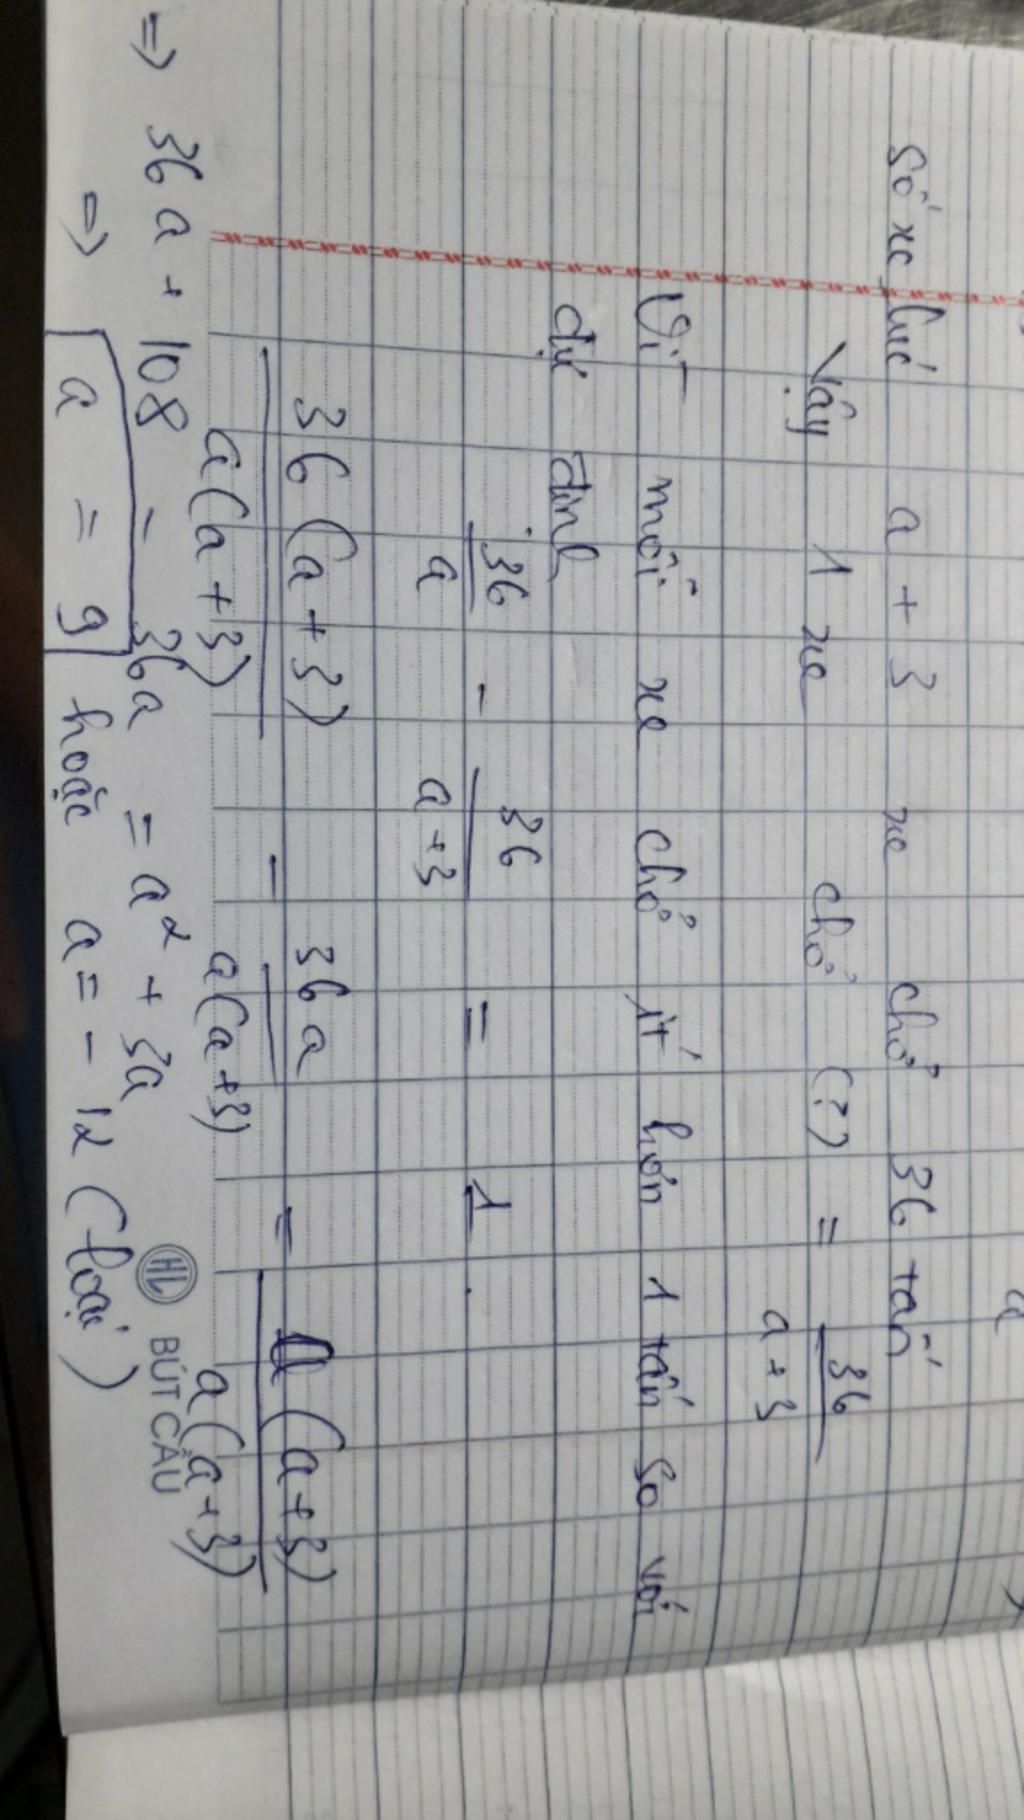 a
Số xe lúc a + 3 xe chở 36 tấn
Vậy 1 xe chở (?) = 36/a+3
Vì mỗi xe chở ít hơn 1 tấn so với
dự định
36/a - 36/a+3 = 1
36(a+3)/a(a+3) - 36a/a(a+3) = a(a+3)/a(a+3)
=> 36a + 108 - 36a = a² + 3a
=> a = 9 hoặc a = - 12 (loại)
HL BÚT CẦU